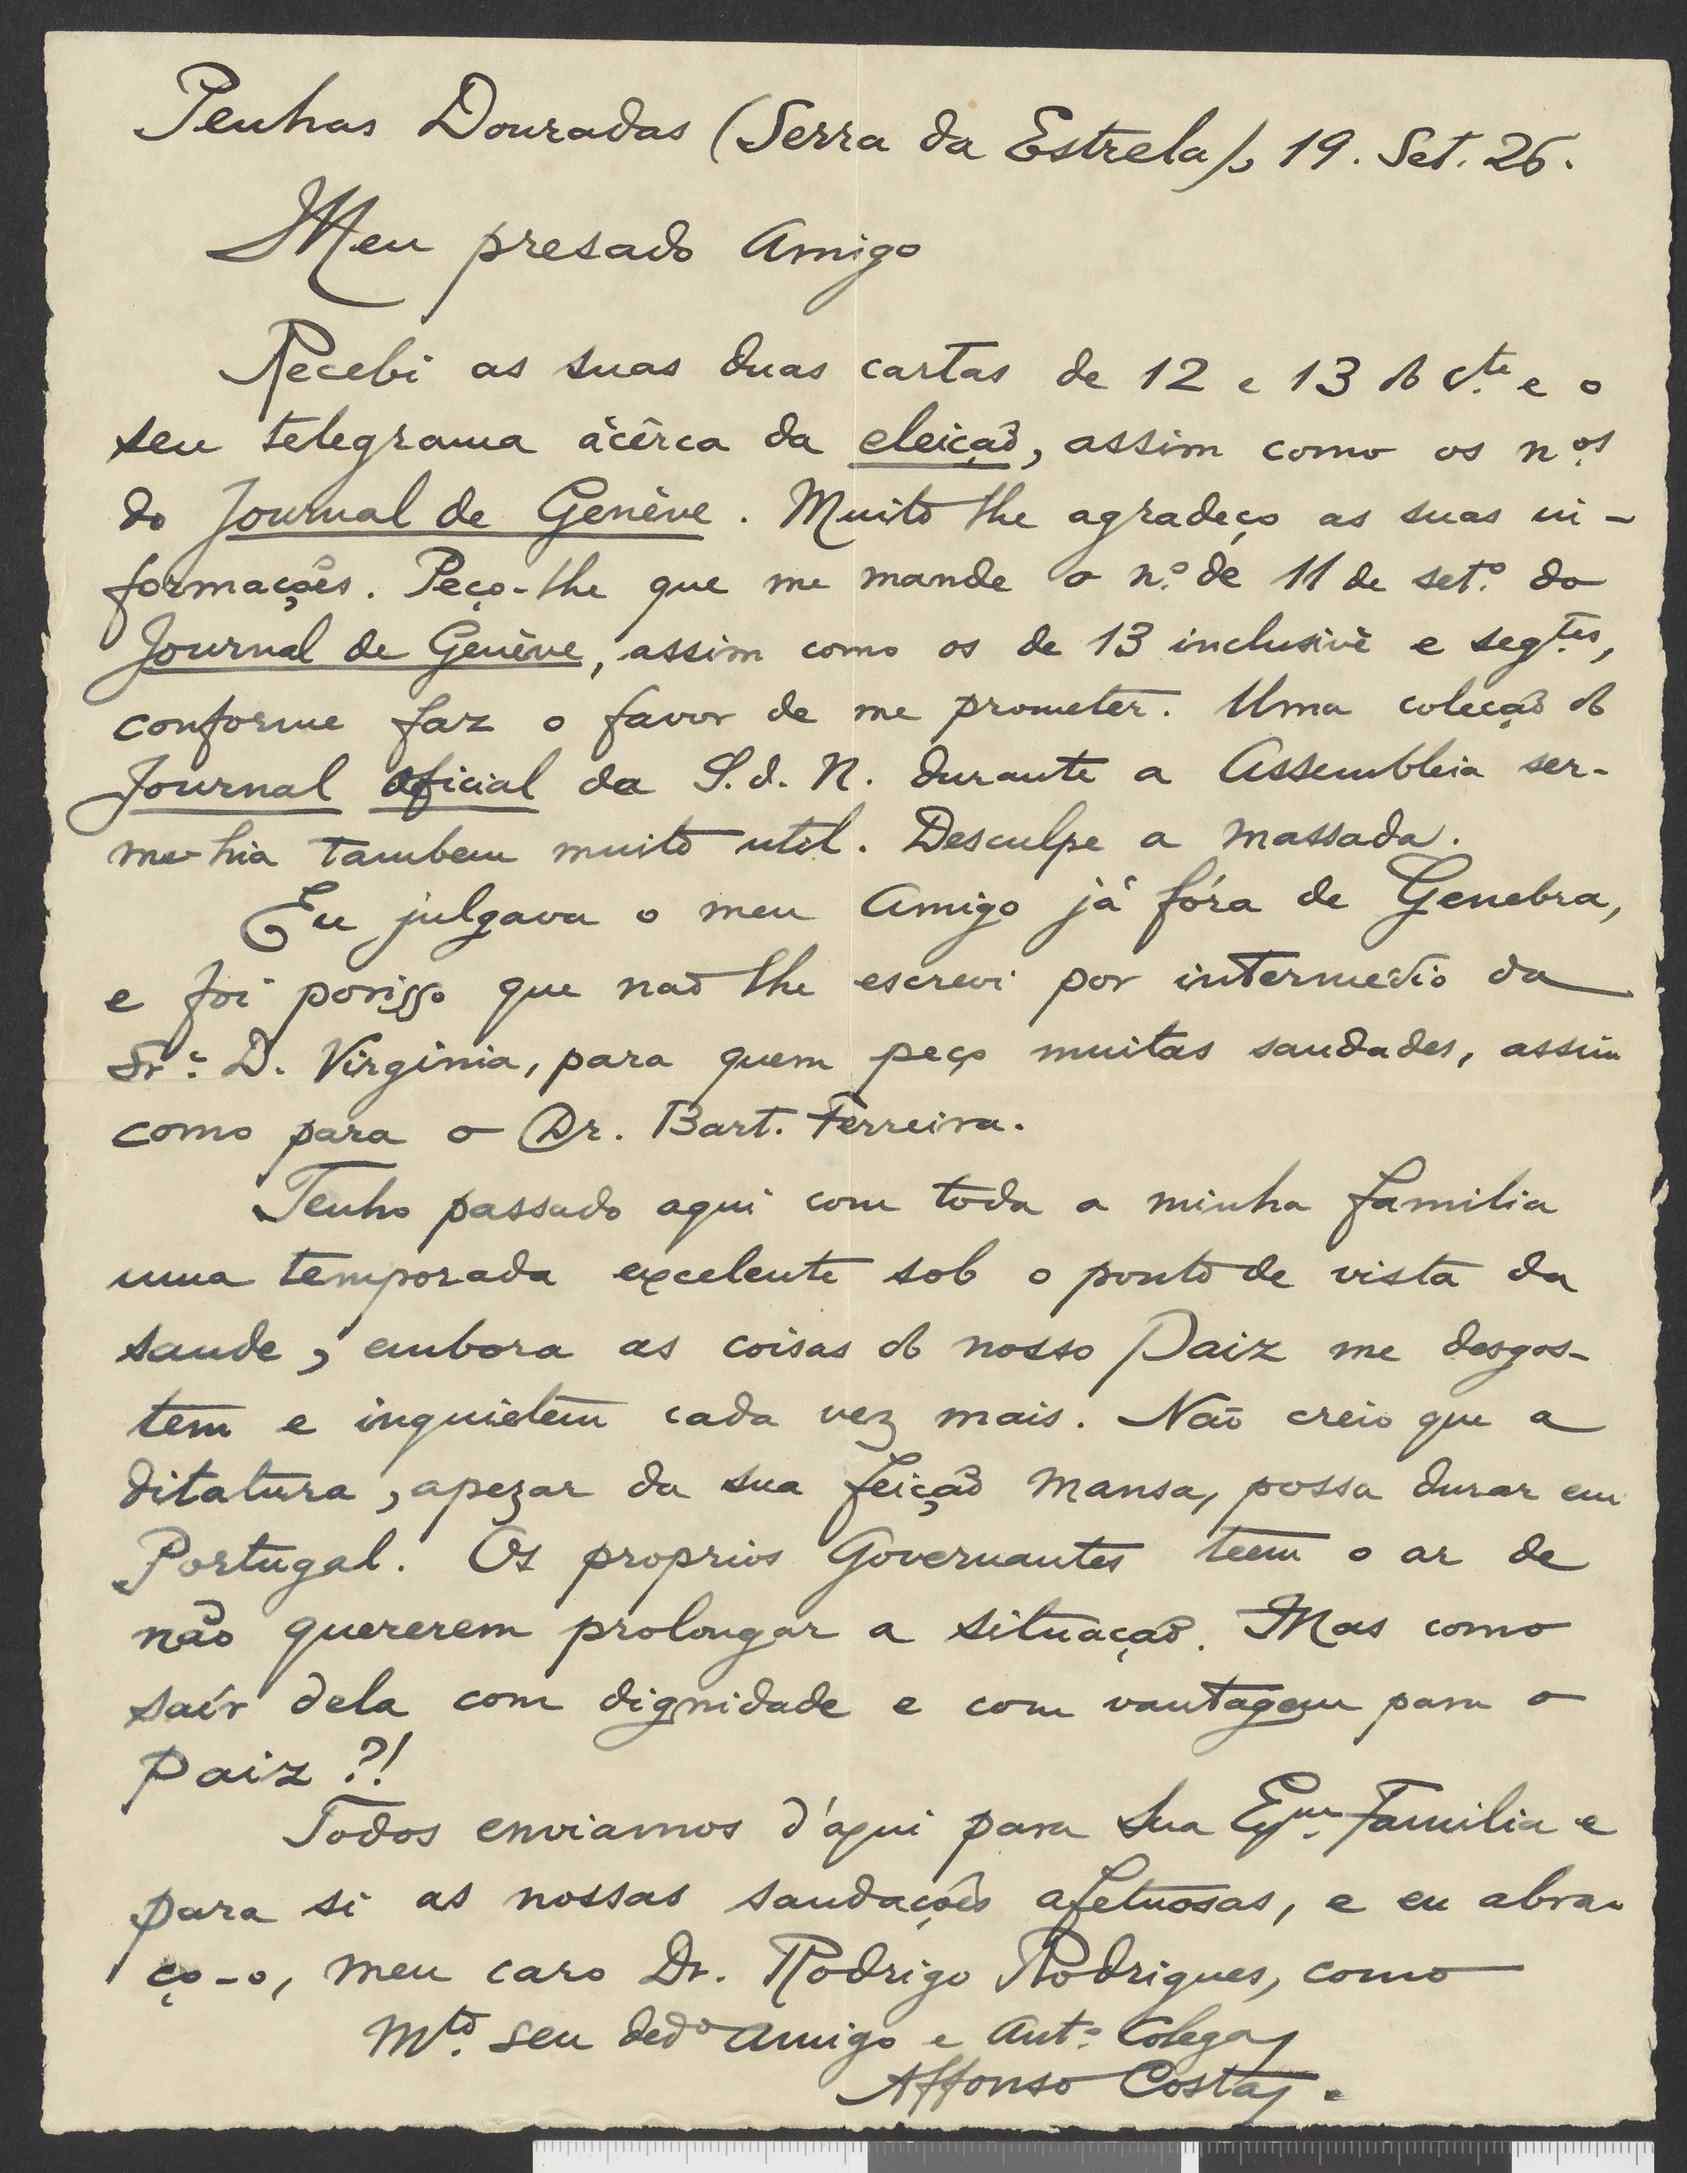 Penhas Douradas (Serra da Estrela), 19. Set. 26.
Meu presado Amigo
Recebi as suas duas cartas de 12 e 13 do c.te e o
seu telegrama àcêrca da eleição, assim como os n.os
do Journal de Genève. Muito lhe agradeço as suas in-
formações. Peço-lhe que me mande o n.º de 11 de set.º do
Journal de Genève, assim como os de 13 inclusivè e seg.tes,
conforme faz o favor de me prometer. Uma coleção do
Journal Oficial da S.d.N. durante a Assembleia ser-
me-hia tambem muito util. Desculpe a massada.
Eu julgava o meu Amigo já fóra de Genebra,
e foi porisso que não lhe escrevi por intermedio da
Sr.ª D. Virginia, para quem peço muitas saudades, assim
como para o Dr. Bart. Ferreira.
Tenho passado aqui com toda a minha familia
uma temporada excelente sob o ponto de vista da
saude, embora as coisas do nosso Paiz me desgos-
tem e inquietem cada vez mais. Não creio que a
ditatura, apezar da sua feição mansa, possa durar em
Portugal. Os proprios Governantes teem o ar de
não quererem prolongar a situação. Mas como
saír dela com dignidade e com vantagem para o
Paiz?!
Todos enviamos d'aqui para sua Ex.ma Familia e
para si as nossas saudações afetuosas, e eu abra-
ço-o, meu caro Dr. Rodrigo Rodrigues, como
M.to seu ded.o Amigo e Ant.º Colega
Affonso Costa.